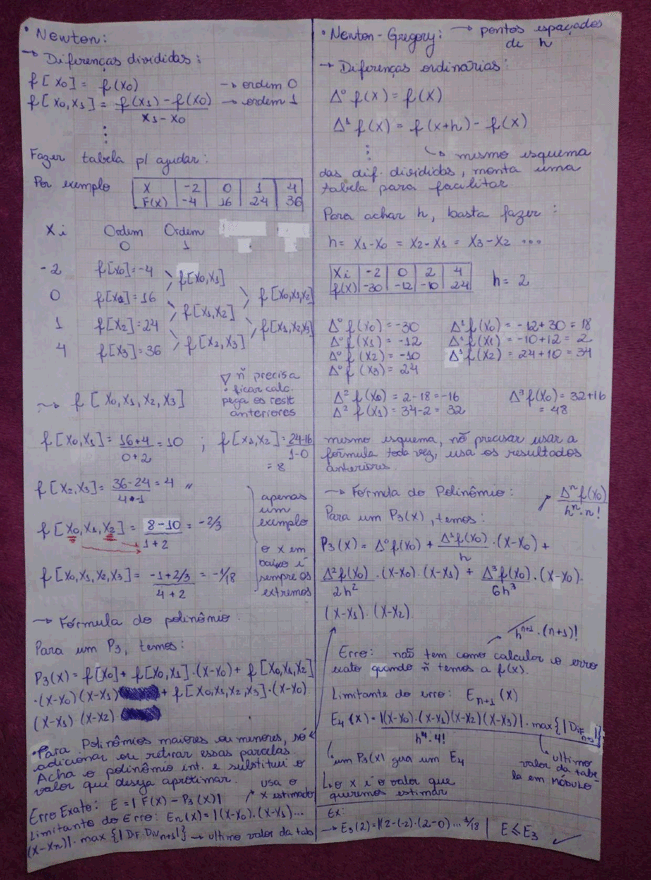 • Newton:
→ Diferenças divididas:
f[x0] = f(x0) → ordem 0
f[x0,x1] = f(x1) - f(x0) → ordem 1
x1 - x0
⋮
Fazer tabela p/ ajudar:
Por exemplo
X | -2 | 0 | 1 | 4
F(x) | -4 | 16 | 24 | 36
Xi Ordem Ordem
0 1
-2 f[x0]=-4 > f[x0,x1]
0 f[x1]=16 > f[x0,x1,x2]
> f[x1,x2]
1 f[x2]=24 > f[x1,x2,x3]
> f[x2,x3]
4 f[x3]=36
n̄ precisa
ficar calc.
pega os result
anteriores
f[x0,x1,x2,x3]
f[x0,x1] = 16+4 = 10 ; f[x1,x2] = 24-16
0+2 1-0
= 8
f[x2,x3] = 36-24 = 4 //
4-1
f[x0,x1,x2] = 8-10 = -2/3
1+2
f[x0,x1,x2,x3] = -1+2/3 = -1/18
4+2
apenas
um
exemplo
o x em
baixo é
sempre os
extremos
→ Fórmula do polinômio:
Para um P3, temos:
P3(x) = f[x0] + f[x0,x1].(x-x0) + f[x0,x1,x2]
.(x-x0)(x-x1) + f[x0,x1,x2,x3].(x-x0)
(x-x1)(x-x2)
• Para Polinômios maiores ou menores, só
adicionar ou retirar essas parcelas.
Acha o polinômio int. e substitui o
valor que deseja aproximar.
usa o
x estimado
Erro Exato: E = |F(x) - P3(x)|
Limitante do Erro: En(x) = |(x-x0).(x-x1)...
(x-xn)|.max{|DF. Div n+1|} → ultimo valor da tab
• Newton-Gregory: → pontos espaçados
de h
→ Diferenças ordinárias:
Δ⁰ f(x) = f(x)
Δ¹ f(x) = f(x+h) - f(x)
⋮ → mesmo esquema
das dif. divididas, monta uma
tabela para facilitar
Para achar h, basta fazer:
h = x1-x0 = x2-x1 = x3-x2 ...
Xi | -2 | 0 | 2 | 4
f(x) | -30 | -12 | -10 | 24
h = 2
Δ⁰ f(x0) = -30 Δ¹ f(x0) = -12+30 = 18
Δ⁰ f(x1) = -12 Δ¹ f(x1) = -10+12 = 2
Δ⁰ f(x2) = -10 Δ¹ f(x2) = 24+10 = 34
Δ⁰ f(x3) = 24
Δ² f(x0) = 2-18 = -16 Δ³ f(x0) = 32+16
Δ² f(x1) = 34-2 = 32 = 48
mesmo esquema, não precisar usar a
fórmula toda vez, usa os resultados
anteriores.
→ Fórmula do Polinômio: Δⁿ f(x0)
hⁿ.n!
Para um P3(x), temos:
P3(x) = Δ⁰ f(x0) + Δ¹ f(x0) . (x-x0) +
h
Δ² f(x0) . (x-x0) . (x-x1) + Δ³ f(x0) . (x-x0).
2h² 6h³
(x-x1) . (x-x2)
hⁿ⁺¹.(n+1)!
Erro: não tem como calcular o erro
exato quando ñ temos a f(x).
Limitante do erro: En+1(x)
E4(x) = |(x-x0).(x-x1)(x-x2)(x-x3)|.max{|Dif n+1|}
h⁴.4!
um P3(x) gera um E4
ultimo
valor da tabe
la em módulo
↳ o x é o valor que
queremos estimar
Ex:
→ E3(2) = |(2-(-2).(2-0)... | E ≤ E3 ✓